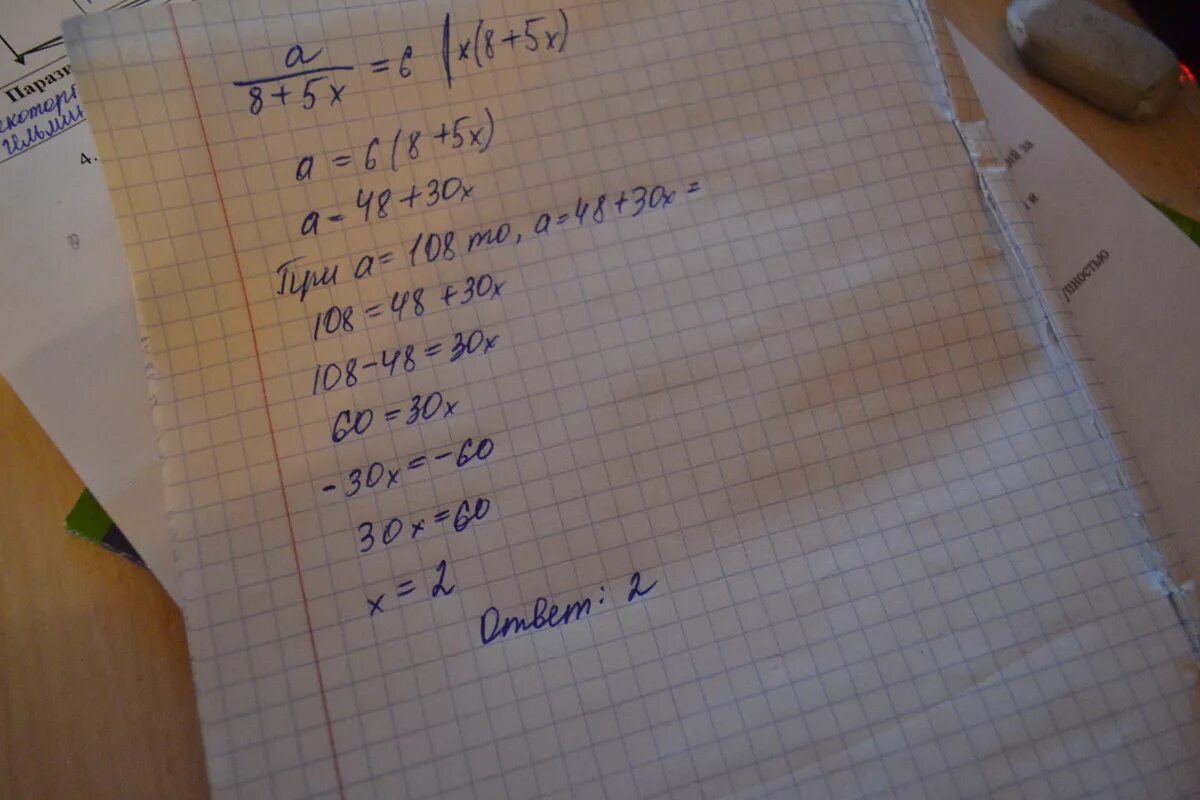 Парази
екотор
гельмин
4.
a/(8+5x) = 6 | x(8+5x)
a = 6(8+5x)
a = 48+30x
При a = 108 то, a = 48+30x =
108 = 48 + 30x
108-48 = 30x
60 = 30x
-30x = -60
30x = 60
x = 2
Ответ: 2
за
и
лностью